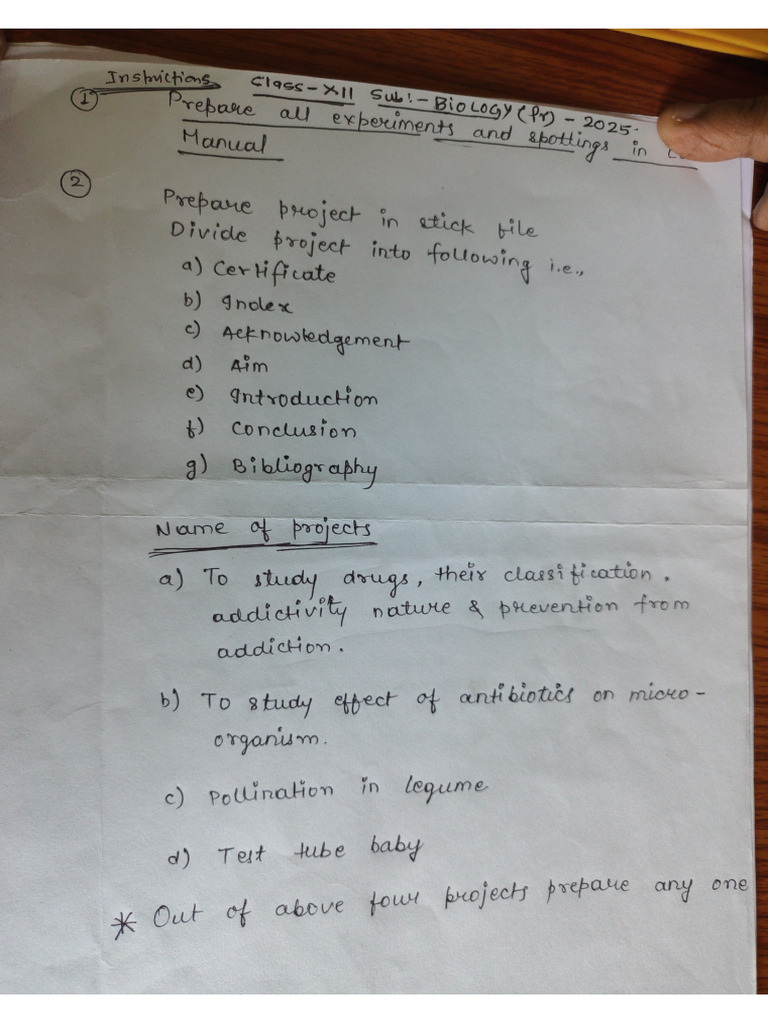 Instructions Class-XII Sub:- BIOLOGY (Pr) - 2025.
① Prepare all experiments and spottings in
Manual
② Prepare project in stick file
Divide project into following i.e.,
a) Certificate
b) Index
c) Acknowledgement
d) Aim
e) Introduction
f) Conclusion
g) Bibliography
Name of projects
a) To study drugs, their classification.
addictivity nature & prevention from
addiction.
b) To study effect of antibiotics on micro-
organism.
c) Pollination in legume
d) Test tube baby
* Out of above four projects prepare any one